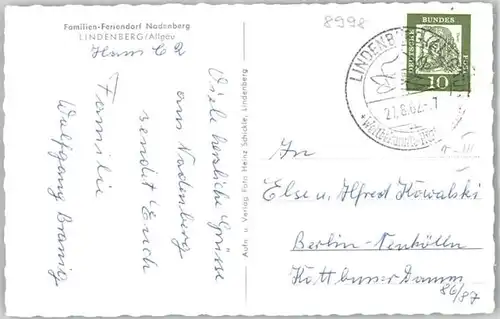 Familien-Feriendorf Nadenberg
LINDENBERG/Allgäu
Haus C2
8998
Viele herzliche Grüsse
aus Nadenberg
sendet Euch
Familie
Wolfgang Branig
Aufn. u. Verlag Foto Heinz Schickle, Lindenberg
LINDENB
27.8.62-7
DEUTSCHE
BUNDES
10
An
Else u. Alfred Kowalski
Berlin-Neukölln
Kottbuser Damm
86/87